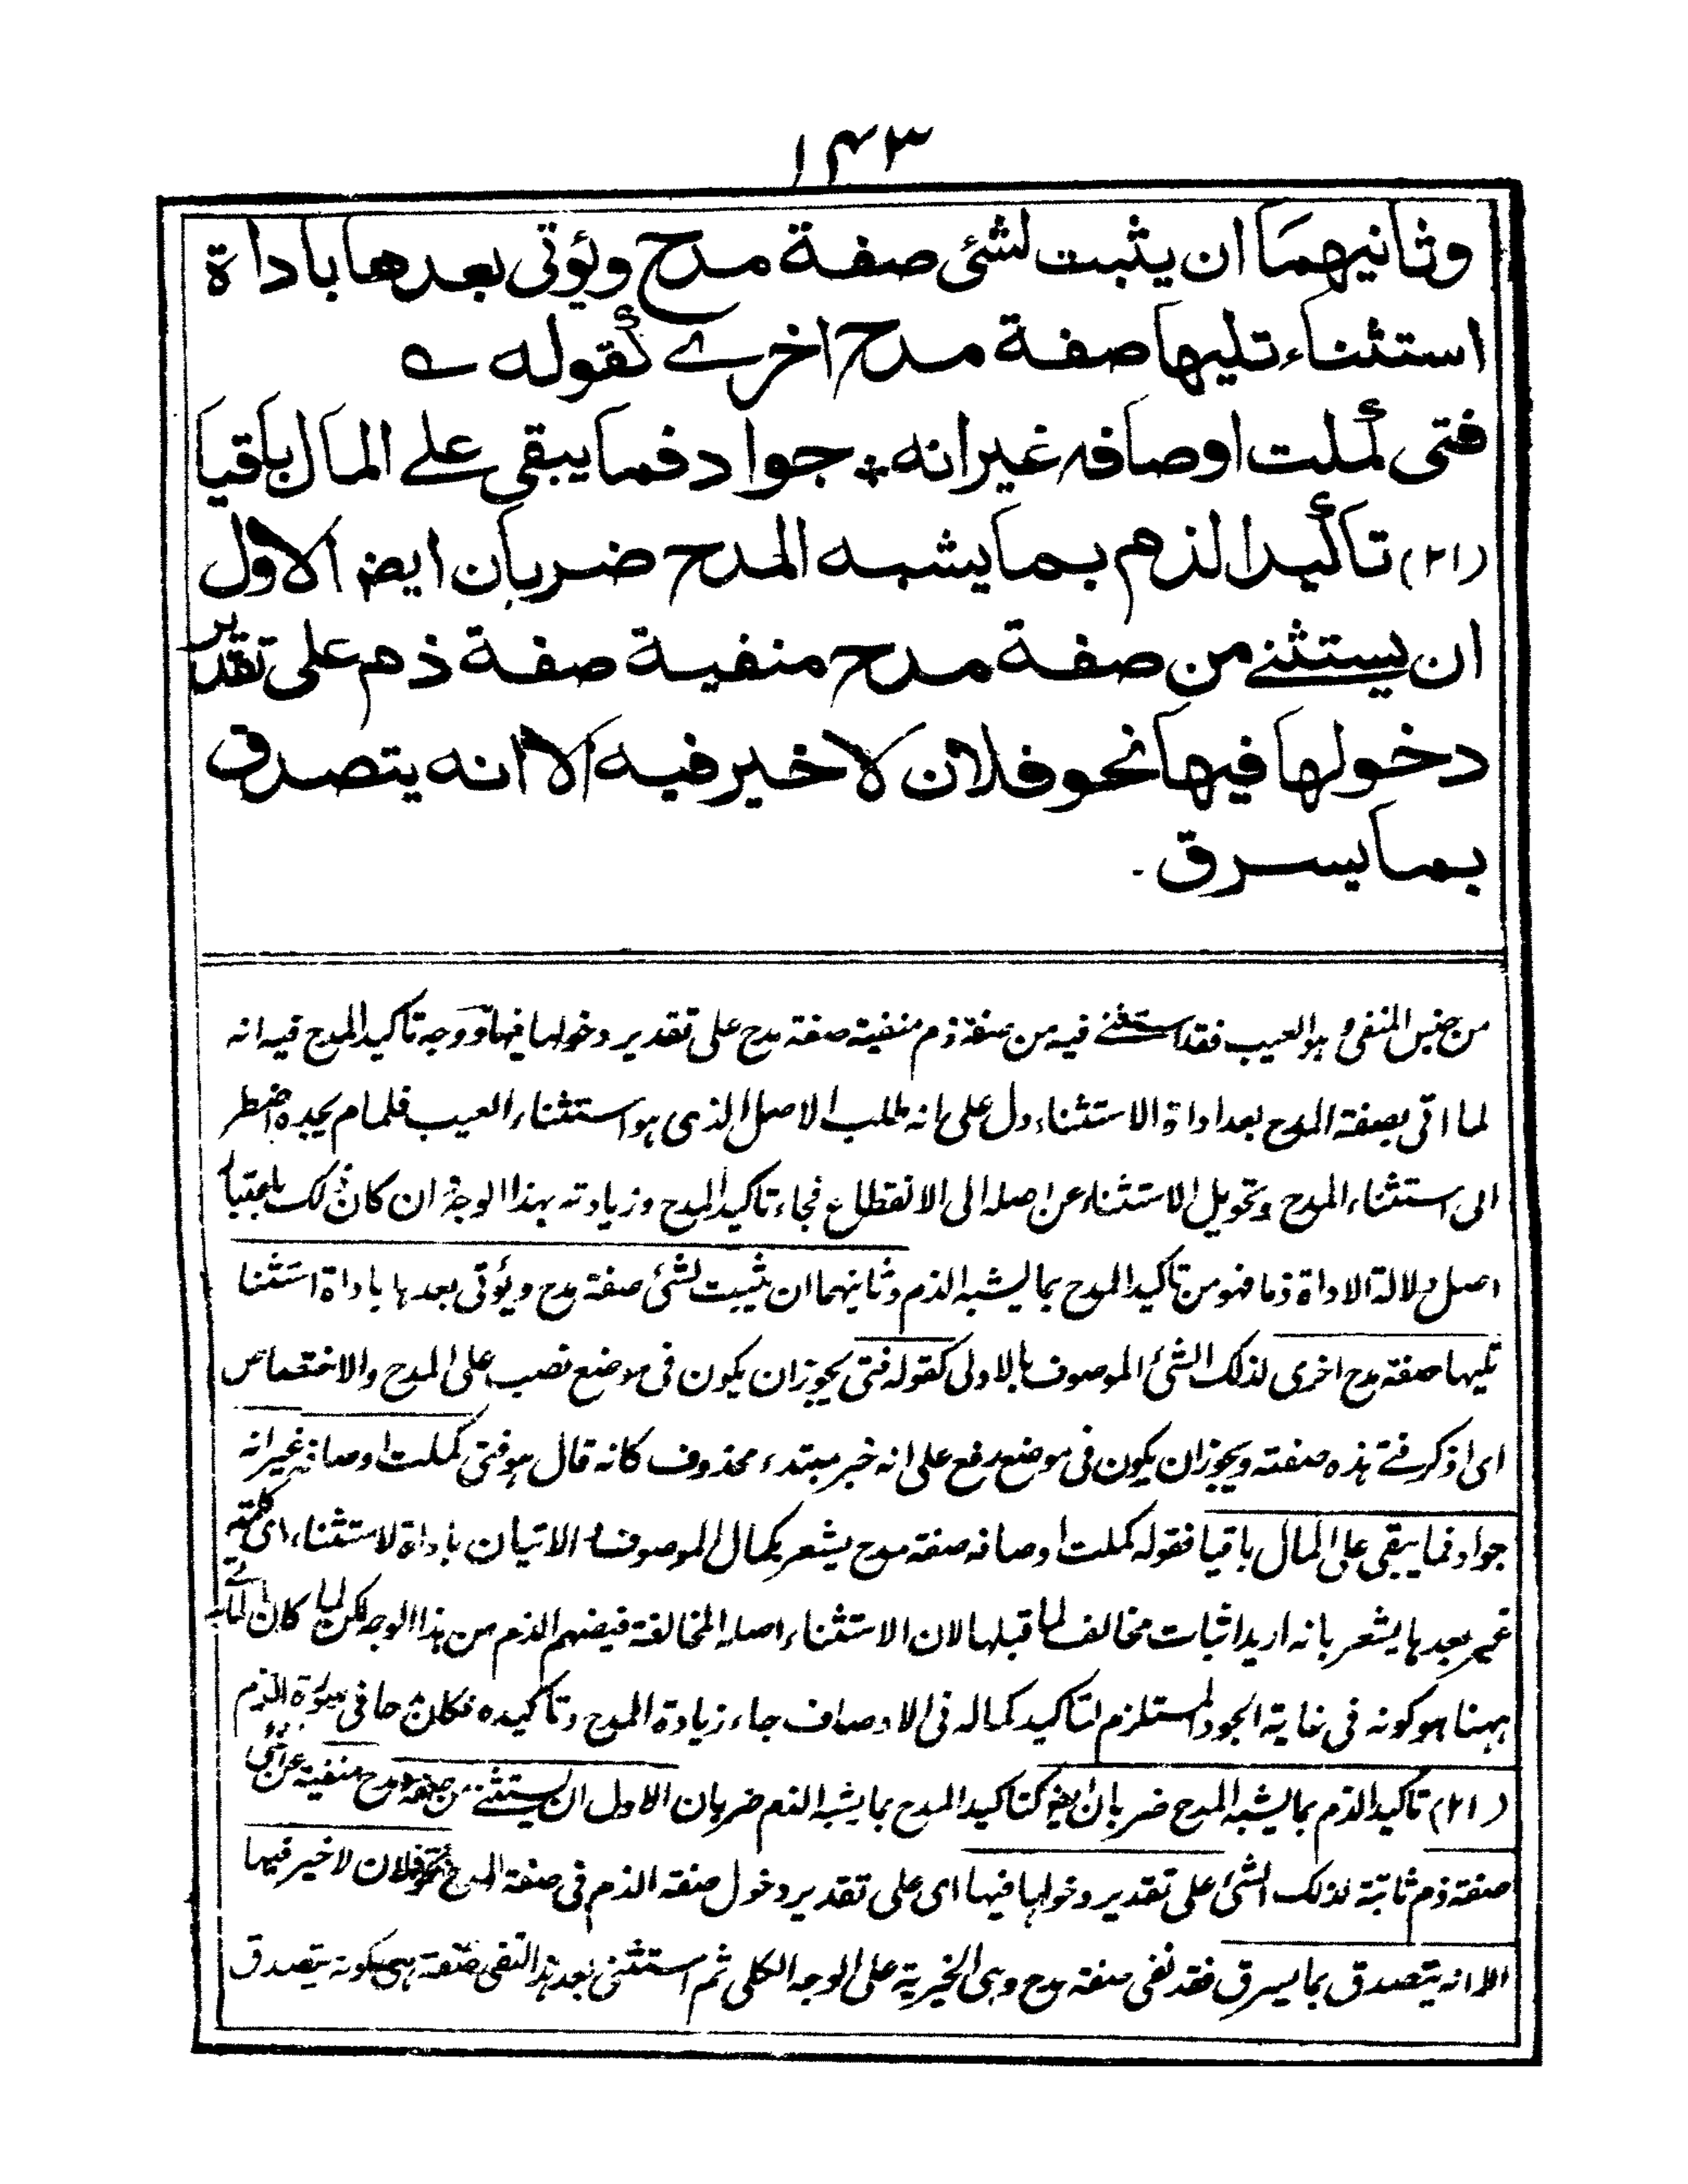 ١٤٣
وثانيهما ان يثبت لشئ صفة مدح ويؤتى بعدها باداة
استثناء تليها صفة مدح اخرى كقوله ؎
فتى كملت اوصافه غير انه ٭ جواد فما يبقى على المال باقيا
(٢١) تأكيد الذم بما يشبه المدح ضربان ايضا الاول
ان يستثنى من صفة مدح منفية صفة ذم على تقدير
دخولها فيها نحو فلان لا خير فيه الا انه يتصدق
بما يسرق .
من جنس المنفى وهو العيب فقد استثنى فيه من صفة ذم منفية صفة مدح على تقدير دخولها فيها ووجه تاكيد المدح فيه انه
لما اتى بصفة المدح بعد اداة الاستثناء دل على انه طلب الاصل الذى هو استثناء العيب فلما لم يجده اضطر
الى استثناء المدح وتحويل الاستثناء عن اصله الى الانقطاع فجاء تاكيد المدح وزيادته بهذا الوجه ان كان ذلك باعتبار
اصل دلالة الاداة ذما فهو من تاكيد المدح بما يشبه الذم وثانيهما ان يثبت لشئ صفة مدح ويؤتى بعدها باداة استثنا
تليها صفة مدح اخرى لذلك الشئ الموصوف بالاولى كقوله فتى يجوز ان يكون فى موضع نصب على المدح والاختصاص
اى اذكر فتى هذه صفته ويجوز ان يكون فى موضع رفع على انه خبر مبتدء محذوف كانه قال هو فتى كملت اوصافه غير انه
جواد فما يبقى على المال باقيا فقوله كملت اوصافه صفة مدح يشعر بكمال الموصوف الاتيان باداة لاستثناء اى كلمة
غير بعدها يشعر بانه اريد اثبات مخالف لما قبلها لان الاستثناء اصله المخالفة فيفهم الذم من هذا الوجه لكن لما كان
ههنا هو كونه فى غاية الجود المستلزم لتاكيد كماله فى الاوصاف جاء زيادة المدح وتاكيده فكان مدحا فى صورة الذم
(٢١) تاكيد الذم بما يشبه المدح ضربان ايضا كتاكيد المدح بما يشبه الذم ضربان الاول ان يستثنى من صفة مدح منفية عن شئ
صفة ذم ثابتة لذلك الشئ على تقدير دخولها فيها اى على تقدير دخول صفة الذم فى صفة المدح نحو فلان لا خير فيها
الا انه يتصدق بما يسرق فقد نفى صفة مدح وهى الخيرية على الوجه الكلى ثم استثنى بعد هذا النفى صفة هى كونه يتصدق